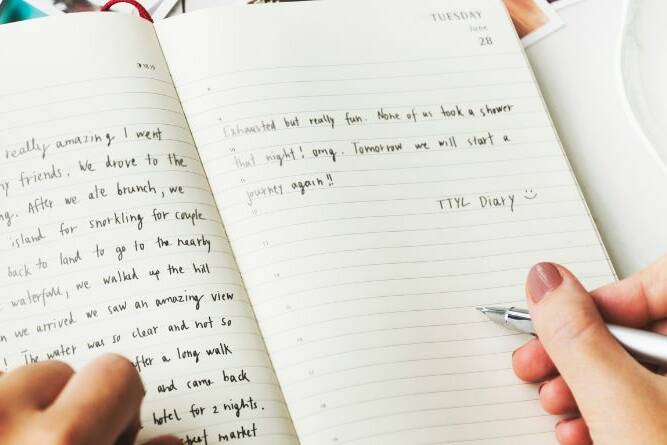 really amazing I went
my friends. We drove to the
After we ate brunch, we
island for snorkling for couple
back to land to go to the nearby
waterfull, we walked up the hill
we arrived we saw an amazing view
! The water was so clear and not so
after a long walk
and came back
hotel for 2 nights.
market
TUESDAY
June
28
Exhausted but really fun. None of us took a shower
that night! omg. Tomorrow we will start a
journey again!!
TTYL Diary